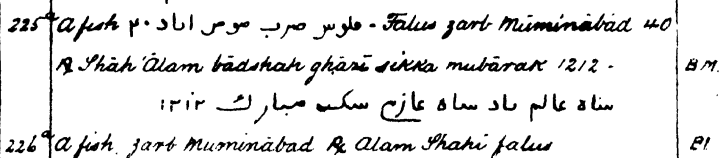 225ᵃ A fish ۴۰ فلوس ضرب مومن اباد - Falus zarb Mūminābād 40
R Shāh 'Ālam bādshah ghāzī sikka mubārak 1212 - B.M.
شاه عالم باد شاه غازي سكه مبارك ١٢١٢
226ᵃ A fish zarb Muminābad R Alam Shahi falus P1.